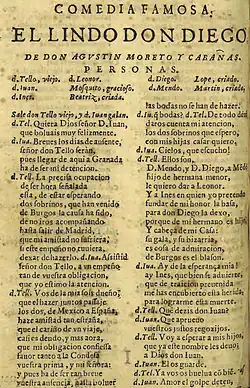 COMEDIA FAMOSA,
EL LINDO DON DIEGO
DE DON AGVSTIN MORETO Y CABAÑAS.
PERSONAS.
d.Tello, viejo. d. Leonor. d. Diego. Lope, criado.
d. Iuan. Mosquito, gracioso. d. Mendo. Martin, criado.
d. Ines. Beatriz, criada.
Sale don Tello viejo, y d. Iuan galan.
d. Tel. Quiera Dios señor D. Iuan,
que bolvais muy felizmente.
d. Iua. Breves los dias de ausente,
señor don Tello seràn,
pues llegar de aqui a Granada
ha de ser mi detencion.
d. Tel. La precisa ocupacion
de ser hora señalada
esta, de estar esperando
dos sobrinos, que han venido
de Burgos la causa ha sido,
de no iros acompañando
hasta salir de Madrid,
que mi amistad no sufriera;
si este empeño no tuviera,
dexar de hazerlo. d. Iua. Assistid
señor d. Tello, a un empeño
tan de vuestra obligacion,
que yo estimo la atencion.
d. Tel. Vos de la mia sois dueño,
que el hazer juntos passage
los dos, de Mexico a España,
haze amistad tan estraña,
que el cariño de un viaje,
casi es deudo, y mas aora,
que mi obligacion confiessa
favor tanto a la Condesa
vuestra prima, y mi señora:
y pues ha de ser tan breve
vuestra ausencia, hasta bolver
las bodas no se han de hazer.
d. Iu. Que bodas? d. Tel. De todo de
daros cuenta mi atencion,
los dos sobrinos que espero,
con mis hijas casar quiero.
d. Iua. Cielos, que escucho!
d. Tel. Ellos son,
D. Mendo, y D. Diego, a Mendo,
hijo de hermana menor,
le quiero dar a Leonor.
Y a Ines en quien yo pretendo
fundar de mi honor la basa,
para don Diego la dexo,
porque de mi hermano es hijo,
Y cabeça de mi Casa:
su gala, y su bizarria,
es cosa de admiracion,
de Burgos es el blason.
d. Iua. Ay de la esperança mia!
ay Ines, que bien se adivierte,
que de traicion prevenida
me has encubierto essa herida,
para lograrme essa muerte.
d. Tel. Que dezis don Iuan?
d. Iua. Que apruevo
vuestros justos regozijos.
d. Tel. Voy a esperar a mis hijos,
que ya este nombre les devo;
a Dios don Iuan.
d. Iua. El os guarde.